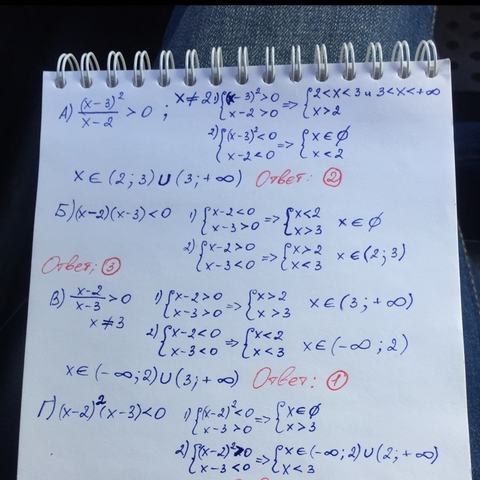 А) (x-3)²/(x-2) > 0 ; x≠2 1) {(x-3)²>0 x-2>0 => {2<x<3 и 3<x<+∞ x>2
2) {(x-3)²<0 x-2<0 => {x∈∅ x<2
x∈(2;3)∪(3;+∞) Ответ: ②
Б) (x-2)(x-3)<0 1) {x-2<0 x-3>0 => {x<2 x>3 x∈∅
2) {x-2>0 x-3<0 => {x>2 x<3 x∈(2;3)
Ответ: ③
В) (x-2)/(x-3) > 0 1) {x-2>0 x-3>0 => {x>2 x>3 x∈(3;+∞)
x≠3
2) {x-2<0 x-3<0 => {x<2 x<3 x∈(-∞;2)
x∈(-∞;2)∪(3;+∞) Ответ: ①
Г) (x-2)²(x-3)<0 1) {(x-2)²<0 x-3>0 => {x∈∅ x>3
2) {(x-2)²>0 x-3<0 => {x∈(-∞;2)∪(2;+∞) x<3